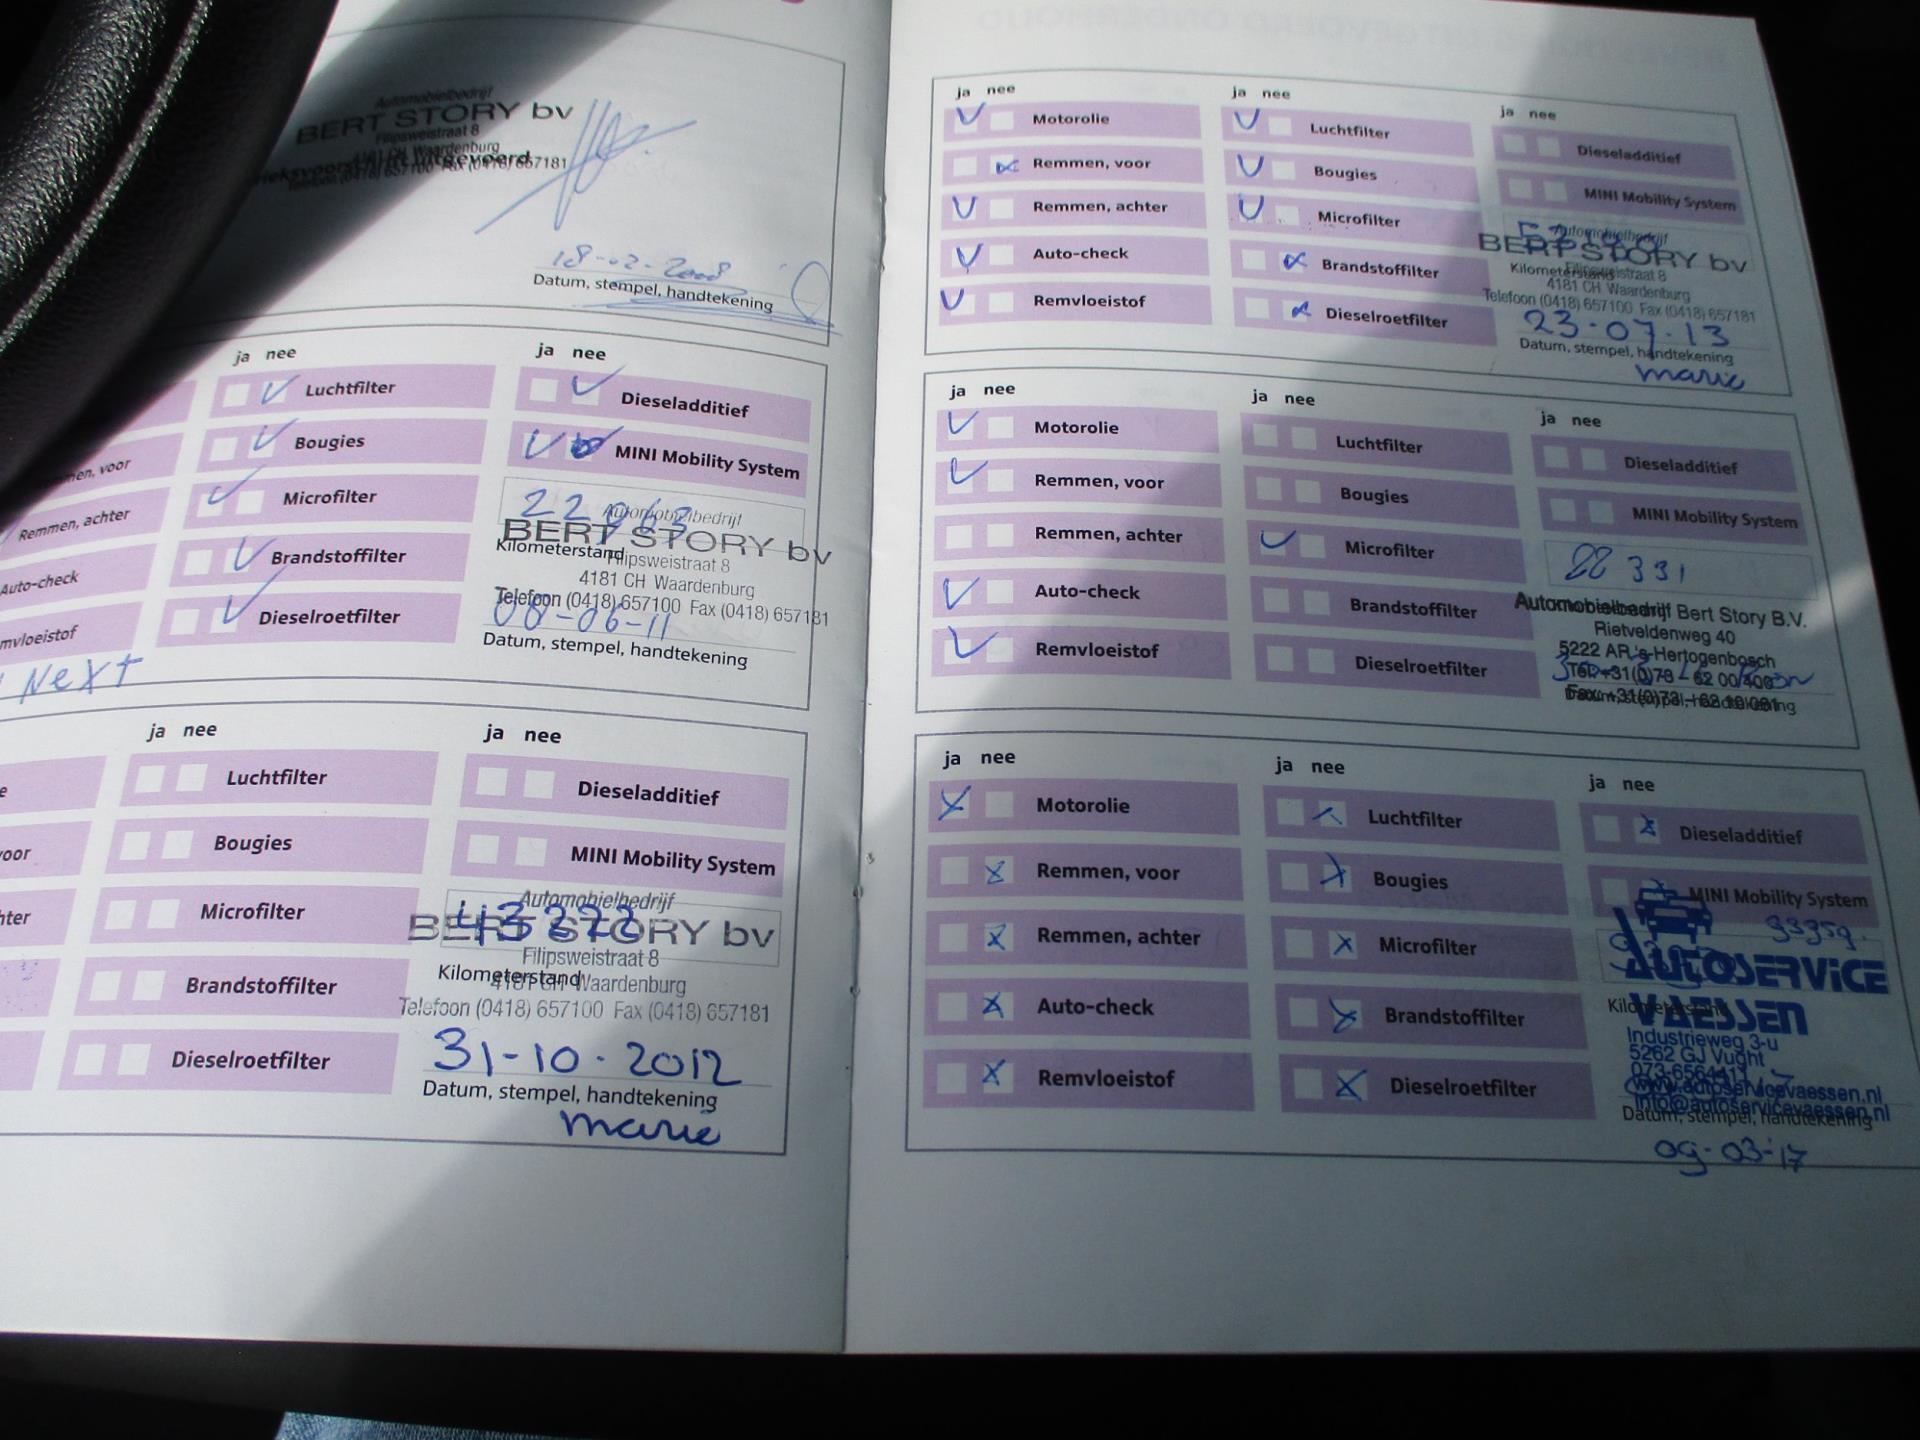 Automobielbedrijf
BERT STORY bv
Filipsweistraat 8
4181 CH Waardenburg
Telefoon (0418) 657100 Fax (0418) 657181
uitgevoerd
18-02-2008
Datum, stempel, handtekening
ja nee
Luchtfilter
Bougies
Microfilter
Brandstoffilter
Dieselroetfilter
ja nee
Dieseladditief
MINI Mobility System
Automobielbedrijf
BERT STORY bv
Kilometerstand
Filipsweistraat 8
4181 CH Waardenburg
Telefoon (0418) 657100 Fax (0418) 657181
08-06-11
Datum, stempel, handtekening
men, voor
Remmen, achter
Auto-check
mvloeistof
Next
ja nee
Luchtfilter
Bougies
Microfilter
Brandstoffilter
Dieselroetfilter
ja nee
Dieseladditief
MINI Mobility System
Automobielbedrijf
43272
BERT STORY bv
Filipsweistraat 8
Kilometerstand
4181 CH Waardenburg
Telefoon (0418) 657100 Fax (0418) 657181
31-10-2012
Datum, stempel, handtekening
marie
e
voor
hter
ja nee
Motorolie
Remmen, voor
Remmen, achter
Auto-check
Remvloeistof
ja nee
Luchtfilter
Bougies
Microfilter
Brandstoffilter
Dieselroetfilter
ja nee
Dieseladditief
MINI Mobility System
Automobielbedrijf
BERT STORY bv
Kilometerstand
Filipsweistraat 8
4181 CH Waardenburg
Telefoon (0418) 657100 Fax (0418) 657181
23-07-13
Datum, stempel, handtekening
marie
ja nee
Motorolie
Remmen, voor
Remmen, achter
Auto-check
Remvloeistof
ja nee
Luchtfilter
Bougies
Microfilter
Brandstoffilter
Dieselroetfilter
ja nee
Dieseladditief
MINI Mobility System
88 331
Automobielbedrijf Bert Story B.V.
Rietveldenweg 40
5222 AR 's-Hertogenbosch
Datum, stempel, handtekening
ja nee
Motorolie
Remmen, voor
Remmen, achter
Auto-check
Remvloeistof
ja nee
Luchtfilter
Bougies
Microfilter
Brandstoffilter
Dieselroetfilter
ja nee
Dieseladditief
MINI Mobility System
AUTOSERVICE
Kilometerstand
VAESSEN
Industrieweg 3-u
5262 GJ Vught
073-6564411
www.autoservicevaessen.nl
info@autoservicevaessen.nl
Datum, stempel, handtekening
09-03-'17